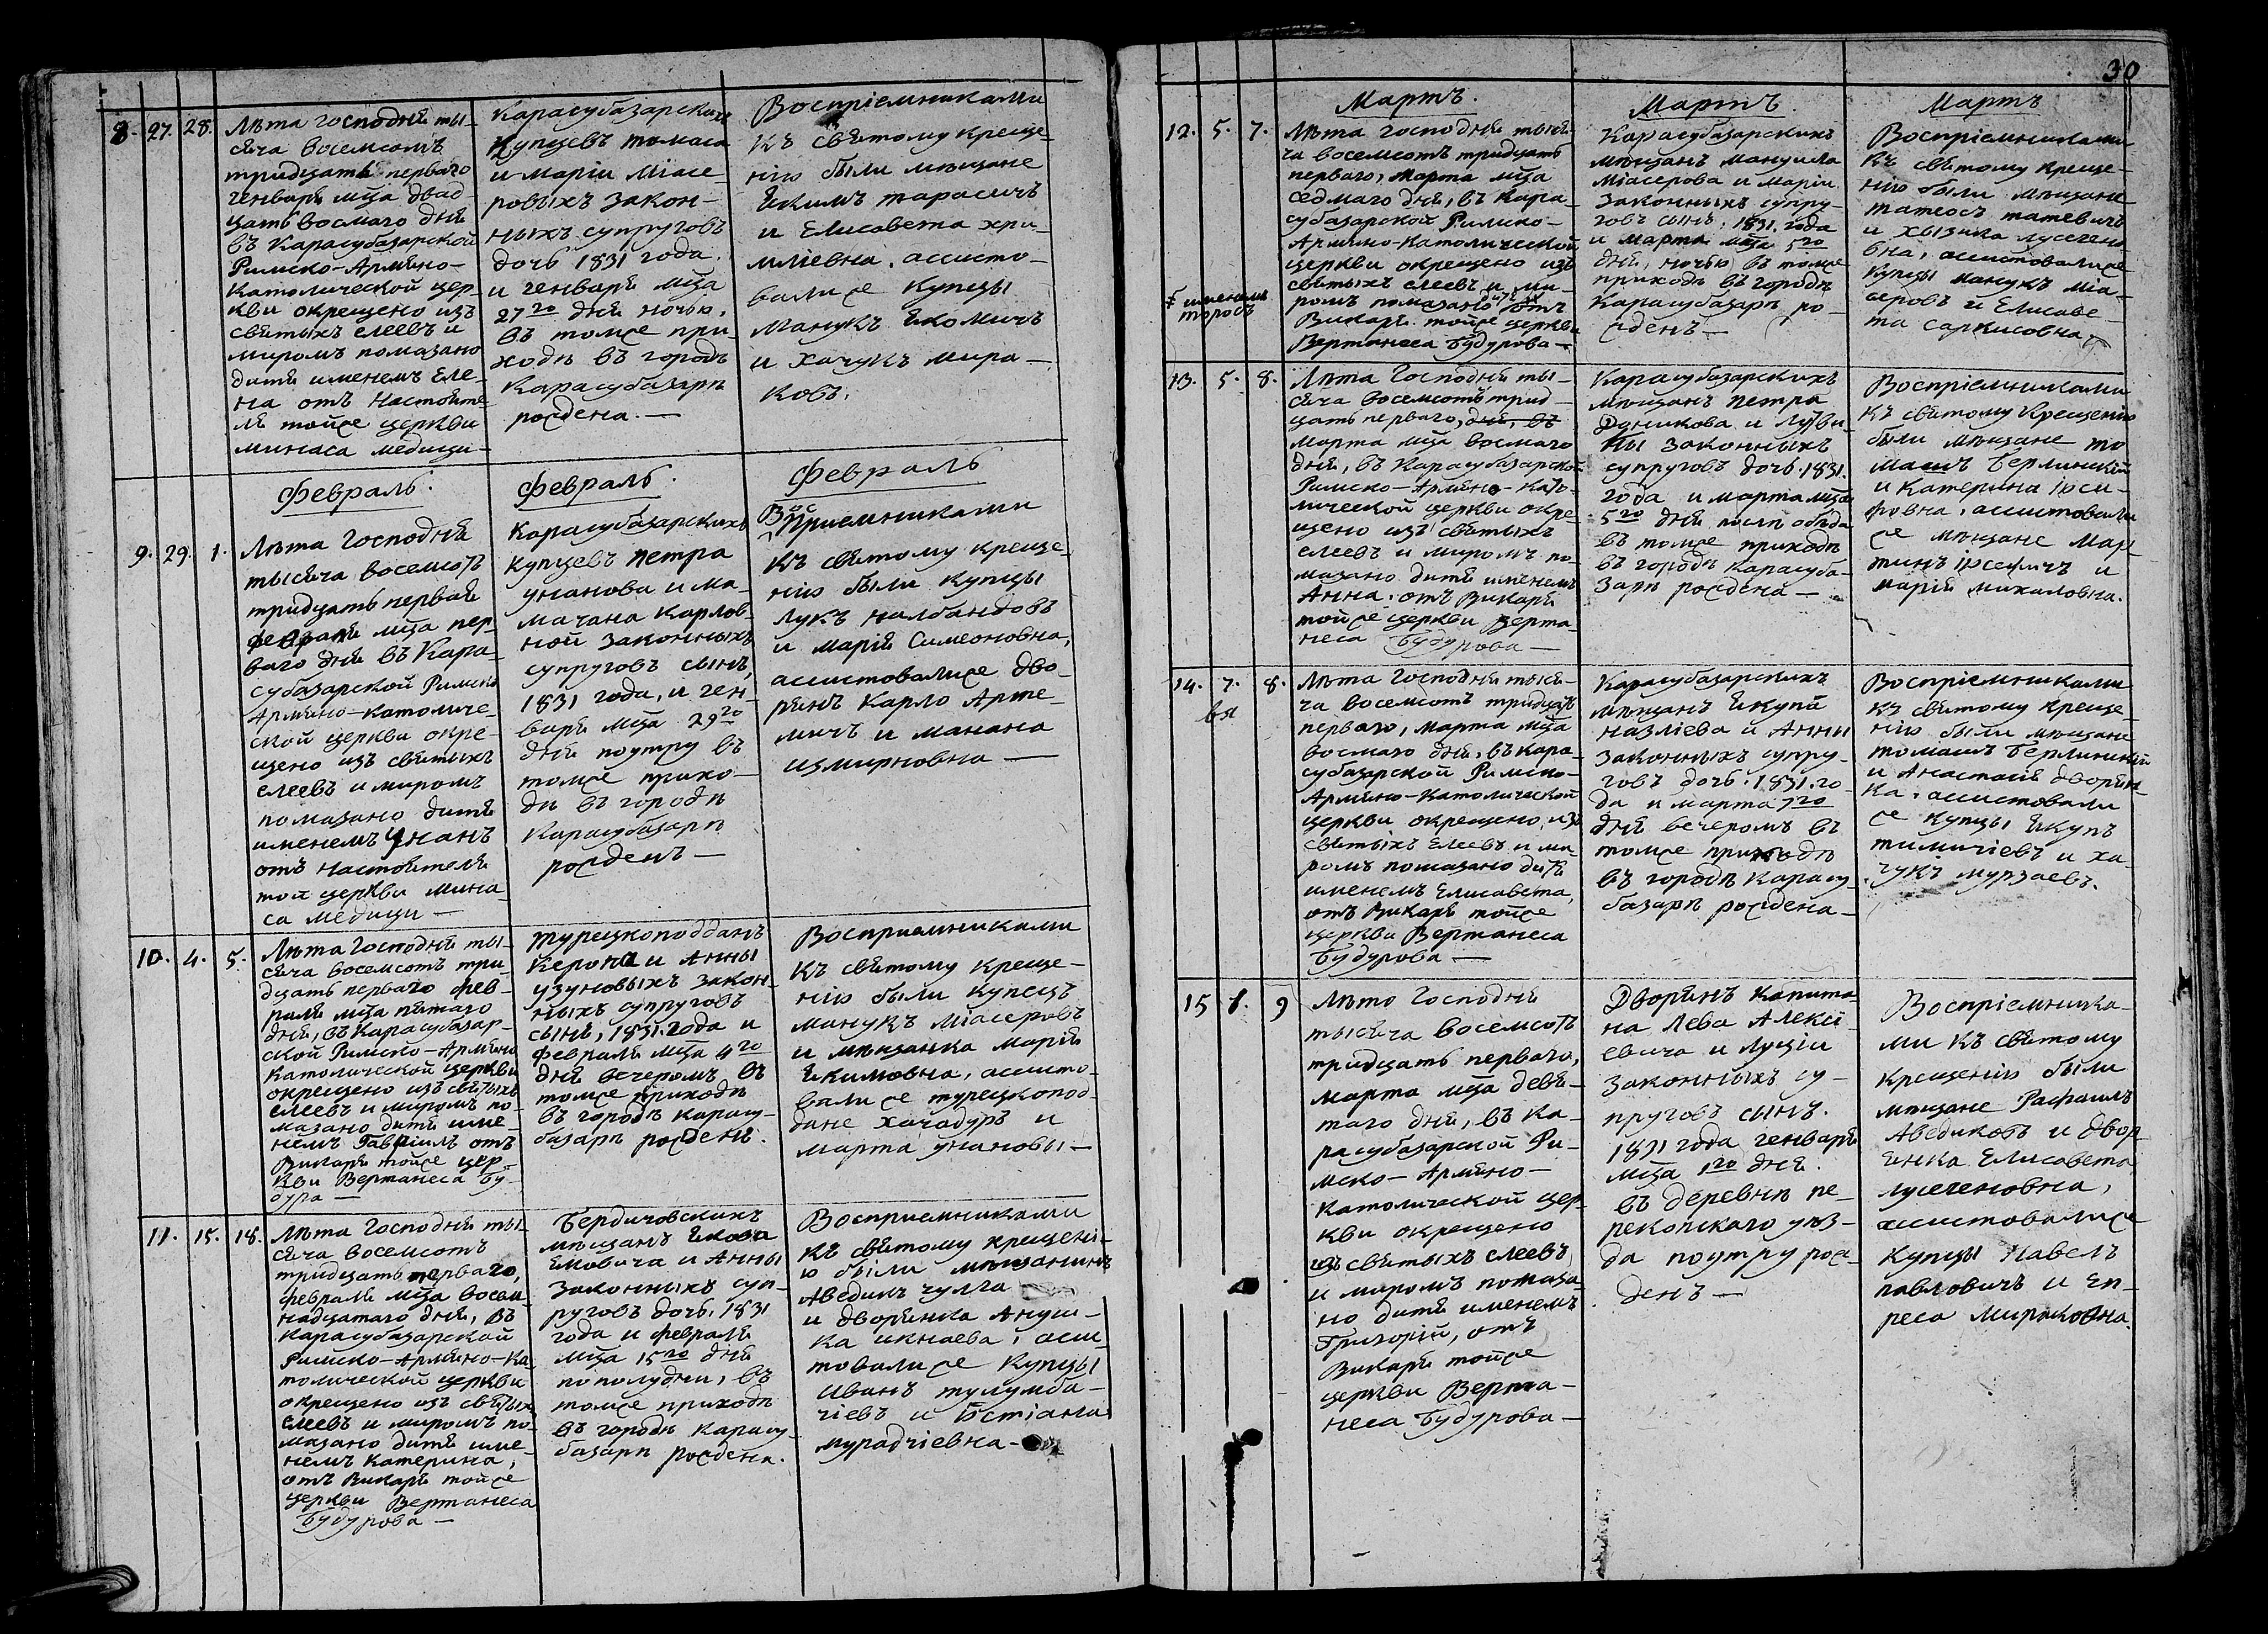 8. 27. 28.
Лѣта господня ты-
сяча восемсотъ
тридцать первого
генваря мца двад
цать восмаго дня
въ Карасубазарской
Римско-Армяно-
католической цер-
кви окрещено изъ
святыхъ елеевъ и
миромъ помазано
дитя именемъ Еле-
на отъ Настояте-
ля тойже церкви
минаса медици-
Карасубазарскихъ
Купцевъ томаса
и маріи Міасе-
ровыхъ закон-
ныхъ супруговъ
дочь 1831 года.
и генваря мца
27го дня ночью.
въ томже при-
ходѣ въ городѣ
Карасубазарѣ
рождена.—
Воспріемниками
къ святому креще-
нію были мѣщане
Якимъ тарасичъ
и Елисавета хри-
мліевна. ассисто-
валисе купцы
Манукъ Якомичъ
и хачукъ мира-
ковъ.
Февраль.
Февраль.
Февраль
9. 29. 1.
Лѣта Господня
тысяча восемсотъ
тридцать первая
февраля мца пер-
ваго дня въ Кара-
субазарской Римско
Армяно-католиче-
ской церкви окре-
щено изъ святыхъ
елеевъ и миромъ
помазано дитя
именемъ Унанъ
отъ настоятеля
той церкви мина-
са медици—
Карасубазарскихъ
купцевъ петра
унанова и ма-
мачана карлов-
ной законныхъ
супруговъ сынъ,
1831 года, и ген-
варя мца 29го
дня поутру въ
томже прихо-
дѣ въ городѣ
Карасубазарѣ
рожденъ—
Воспрiемниками
къ святому креще-
нію были купцы
лукъ налбандовъ
и марія Симеоновна,
ассистовалисе дво-
рянъ карло Арте-
мичъ и манана
измирновна—
10. 4. 5.
Лѣта Господня ты-
сяча восемсотъ три-
дцать перваго фев-
раля мца пятаго
дня, въ Карасубазар-
ской Римско-Армяно
католической церкви
окрещено изъ святыхъ
елеевъ и миромъ по-
мазано дитя име-
немъ Гавріилъ отъ
Викаря тойже цер-
кви Вертанеса Бу-
дура—
Турецкоподданъ
Керопа и Анны
узуновыхъ закон-
ныхъ супруговъ
сынъ, 1831. года и
февраля мца 4го
дня вечеромъ въ
томже приходѣ
въ городѣ карасу-
базарѣ рожденъ.
Восприемниками
къ святому креще-
нію были купецъ
манукъ Міасеровъ
и мѣщанка марія
Якимовна, ассисто-
валисе турецкопод-
дане хачадуръ и
марта унановы—
11. 15. 18.
Лѣта Господня ты-
сяча восемсотъ
тридцать перваго,
февраля мца восем-
надцатаго дня, въ
Карасубазарской
Римско-Армяно-Ка-
толической церкви
окрещено изъ святыхъ
елеевъ и миромъ по-
мазано дитя име-
немъ катерина,
отъ викаря тойже
церкви Вертанеса
Будурова—
Бердичовскихъ
мѣщанъ Якова
Еховича и Анны
законныхъ суп-
руговъ дочь, 1831
года и февраля
мца 15го дня
пополудни, въ
томже приходѣ
въ городѣ карасу-
базарѣ рождена.
Восприемниками
къ святому крещені-
ю были мѣщанинъ
Аведикъ чулга
и дворянка Ануш-
ка икнаева, асси
товалисе купцы
Иванъ тулумба-
чіевъ и Бстіана
мурадчіевна-
30
Мартъ.
Мартъ.
Мартъ
12. 5. 7.
Лѣта господня тыся-
ча восемсотъ тридцать
перваго, марта мца
седмаго дня, въ Кара-
субазарской Римско-
Армяно-Католической
церкви окрещено изъ
святыхъ елеевъ и ми-
ромъ помазано отъ
Викаря тойже церкви
Вертанеса Будурова—
именемъ
торосъ
Карасубазарскихъ
мѣщанъ мануила
міасерова и маріи
законныхъ супру-
говъ сынъ, 1831. года
и марта мца 5го
дня, ночью въ томже
приходѣ въ городѣ
Карасубазарѣ ро-
жденъ—
Воспріемниками
къ святому креще-
нію были мѣщане
татеосъ татевичъ
и хызика лусегено
вна, ассистовалисе
купцы манукъ міа-
серовъ и Елисаве-
та саркисовна,
13. 5. 8.
Лѣта Господня ты-
сяча восемсотъ трид-
цать перваго, дня, въ
марта мца восмаго
дня, въ Карасубазарской
Римско-Армяно-Като-
лической церкви окре-
щено изъ святыхъ
елеевъ и миромъ по-
мазано дитя именемъ
Анна. отъ Викаря
тойже церкви Верта-
неса Будурова—
Карасубазарскихъ
мѣщанъ петра
Доникова и Лузи-
ны законныхъ
супруговъ дочь. 1831.
года и марта мца
5го дня послѣ обѣда
въ томже приходѣ
въ городѣ Карасуба-
зарѣ рождена—
Воспріемниками
къ святому крещенію
были мѣщане то
машъ Берлинскій
и Катерина Ірси-
фовна, ассистовали
се мѣщане Мар
тинъ ірсевичъ и
марія михаловна.
14. 7. 8.
Лѣта Господня тыся-
ча восемсотъ тридцать
перваго, марта мца
восмаго дня, въ кара-
субазарской Римско-
Армяно-католической
церкви окрещено, изъ
святыхъ елеевъ и ми-
ромъ помазано дитя
именемъ Елисавета,
отъ викаря тойже
церкви Вертанеса
Будурова—
Карасубазарскихъ
мѣщанъ Якупа
назлiева и Анны
законныхъ супру-
говъ дочь. 1831. го-
да и марта 7го
дня вечеромъ въ
томже приходѣ
въ городѣ Карасу-
базарѣ рождена—
Воспріемниками
къ святому креще-
нію были мѣщане
томашъ Берлинскій
и Анастасія дворян-
ка. ассистовали
се купцы Якупъ
тимичіевъ и ха-
чукъ мурзаевъ.
15 1. 9
Лѣто Господня
тысяча восемсотъ
тридцать перваго,
марта мца девя-
таго дня, въ ка-
расубазарской Ри-
мско-Армяно-
католической цер-
кви окрещено
изъ святыхъ елеевъ
и миромъ помаза-
но дитя именемъ
Григорій, отъ
Викаря тойже
церкви Верта-
неса Будурова—
Дворянъ капита-
на Лева Алексі-
евича и Луціи
законныхъ су-
пруговъ сынъ.
1831 года генваря
мца 1го дня.
въ деревнѣ пе-
рекопскаго уѣз-
да поутру рож-
денъ—
Воспріемника-
ми къ святому
крещенію были
мѣщане Рафаилъ
Аведиковъ и двор
янка Елисавета
лусегеновна,
ассистовалисе
купцы Павелъ
павловичъ и Еп-
реса Мираковна.